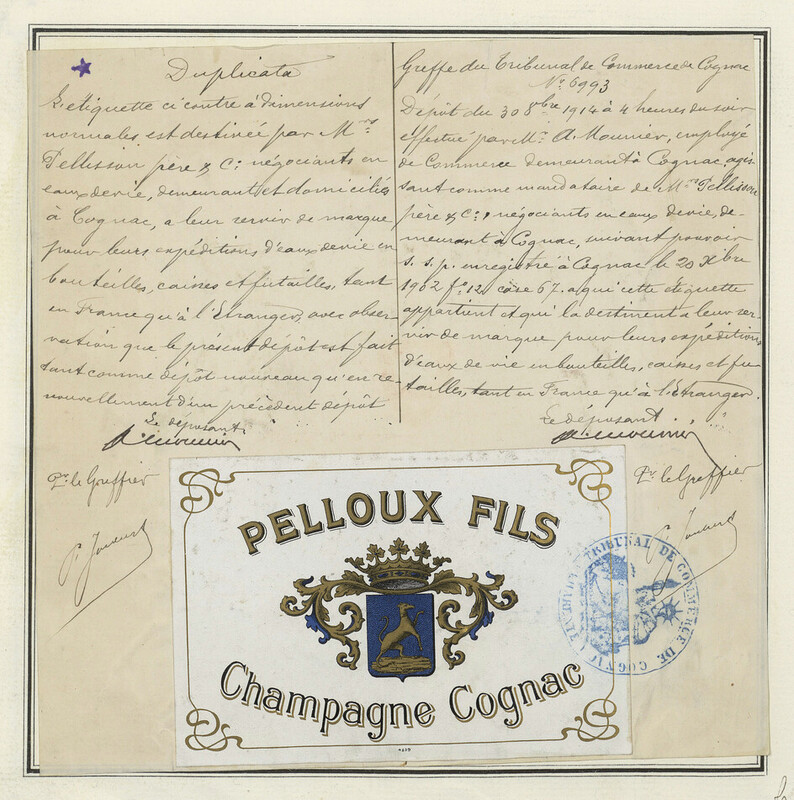 Duplicata
L'étiquette ci contre à dimensions
normales est destinée par Mrs
Pellisson père & Cie négociants en
eaux devie, demeurant et domiciliés
à Cognac, a leur servir de marque
pour leurs expéditions d'eaux devie en
bouteilles, caisses et futailles, tant
en France qu'à l'Etranger, avec obser-
vation que le présent dépôt est fait
tant comme dépôt nouveau qu'en re-
nouvellement d'un précédent dépôt
Le déposant
A. Mounier
Pr. le Greffier
Greffe du Tribunal de Commerce de Cognac
No 6993
Dépôt du 30 8bre 1914 à 4 heures du soir
effectué par Mr. A. Mounier, employé
de Commerce demeurant à Cognac, agis-
sant comme mandataire de Mrs Pellisson
père & Cie, négociants en eaux devie, de-
meurant à Cognac, suivant pouvoir
s. s. p. enregistré à Cognac le 20 Xbre
1902 fo 12 case 67. a qui cette étiquette
appartient et qui la destinent a leur ser-
vir de marque pour leurs expéditions
d'eaux de vie en bouteilles, caisses et fu-
tailles, tant en France qu'à l'Etranger.
Le déposant
A. Mounier
Pr. le Greffier
PELLOUX FILS
Champagne Cognac
TRIBUNAL DE COMMERCE DE COGNAC